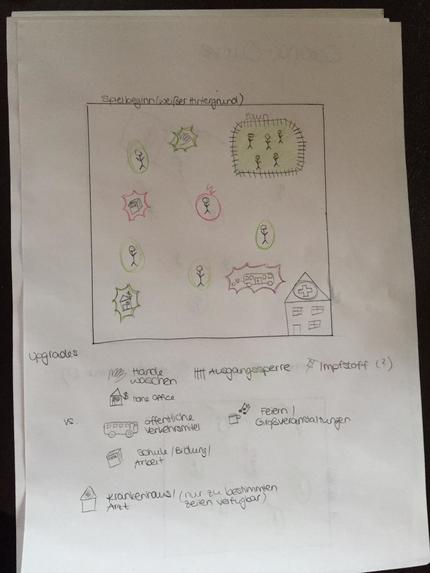 Spielbeginn (weißer Hintergrund)
upgrades
Hände waschen
Ausgangssperre
Impfstoff (?)
home office
vs.
öffentliche
Verkehrsmittel
Feiern /
Großveranstaltungen
Schule / Bildung /
Arbeit
Krankenhaus / (nur zu bestimmten
Arzt zeiten verfügbar)